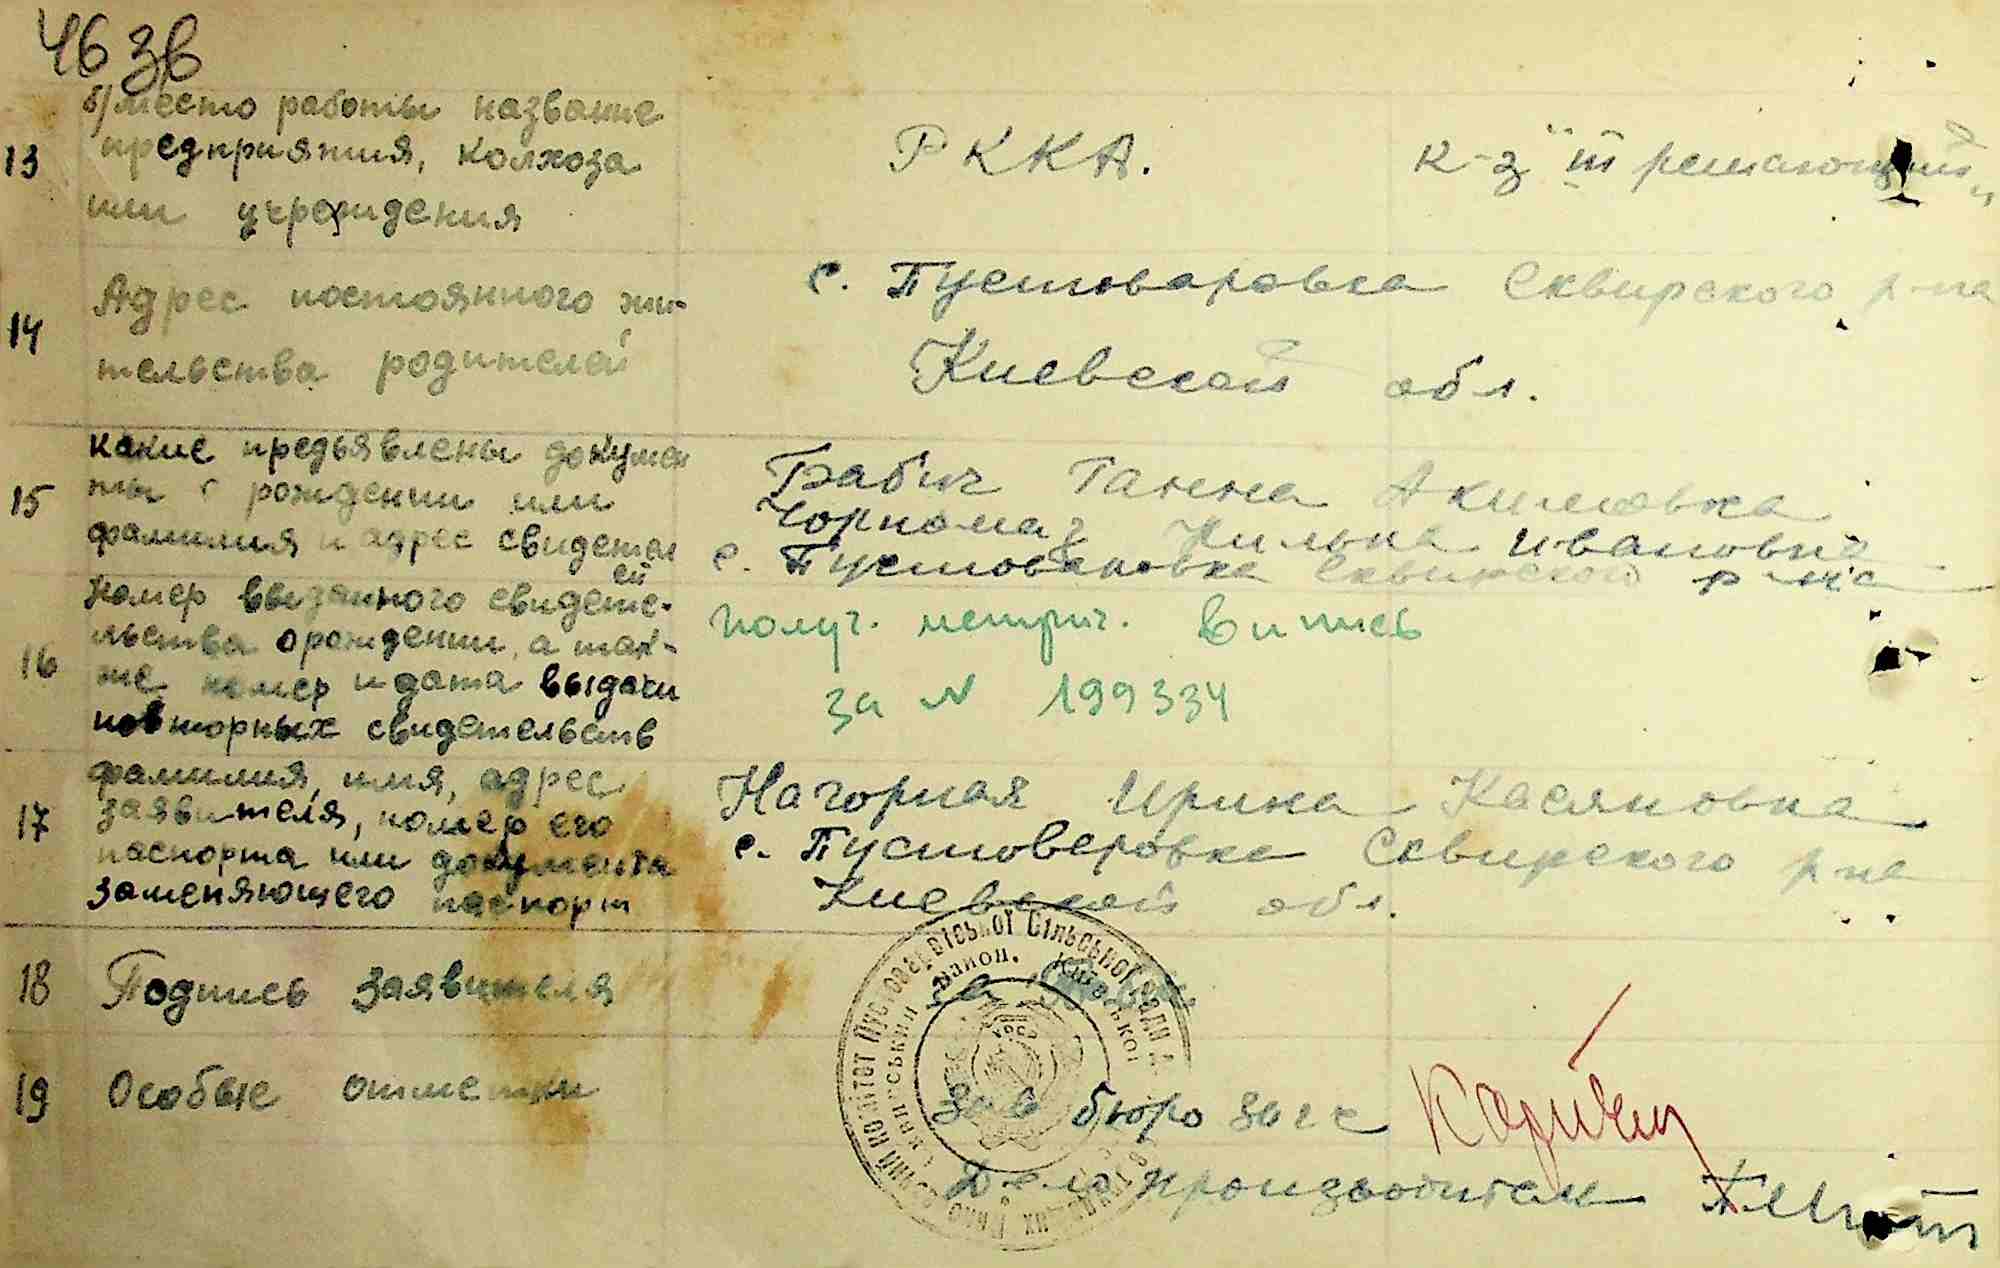 46 зв
б) место работы название
13 предприятия, колхоза РККА. к-з "III решающий"
или учреждения
14 Адрес постоянного жи- с. Пустоваровка Сквирского р-на
тельства родителей Киевской обл.
какие предъявлены докумен
15 ты о рождении или Бабич Ганна Акимовна
фамилия и адрес свидетел Чорномаз Ивановна
ей с. Пустоваровка Сквирского р-на
номер выданного свидете- получ. метрич. випись
льства о рождении, а так-
16 же номер и дата выдачи за N 199334
повторных свидетельств
фамилия, имя, адрес Нагорная Ирина Касяновна
17 заявителя, номер его с. Пустоверовка Сквирского р-на
паспорта или документа Киевской обл.
заменяющего паспорт
18 Подпись заявителя
19 Особые отметки Зав бюро загс
Делопроизводитель
комітет Пустоварівської Сільської Ради
район. Київської